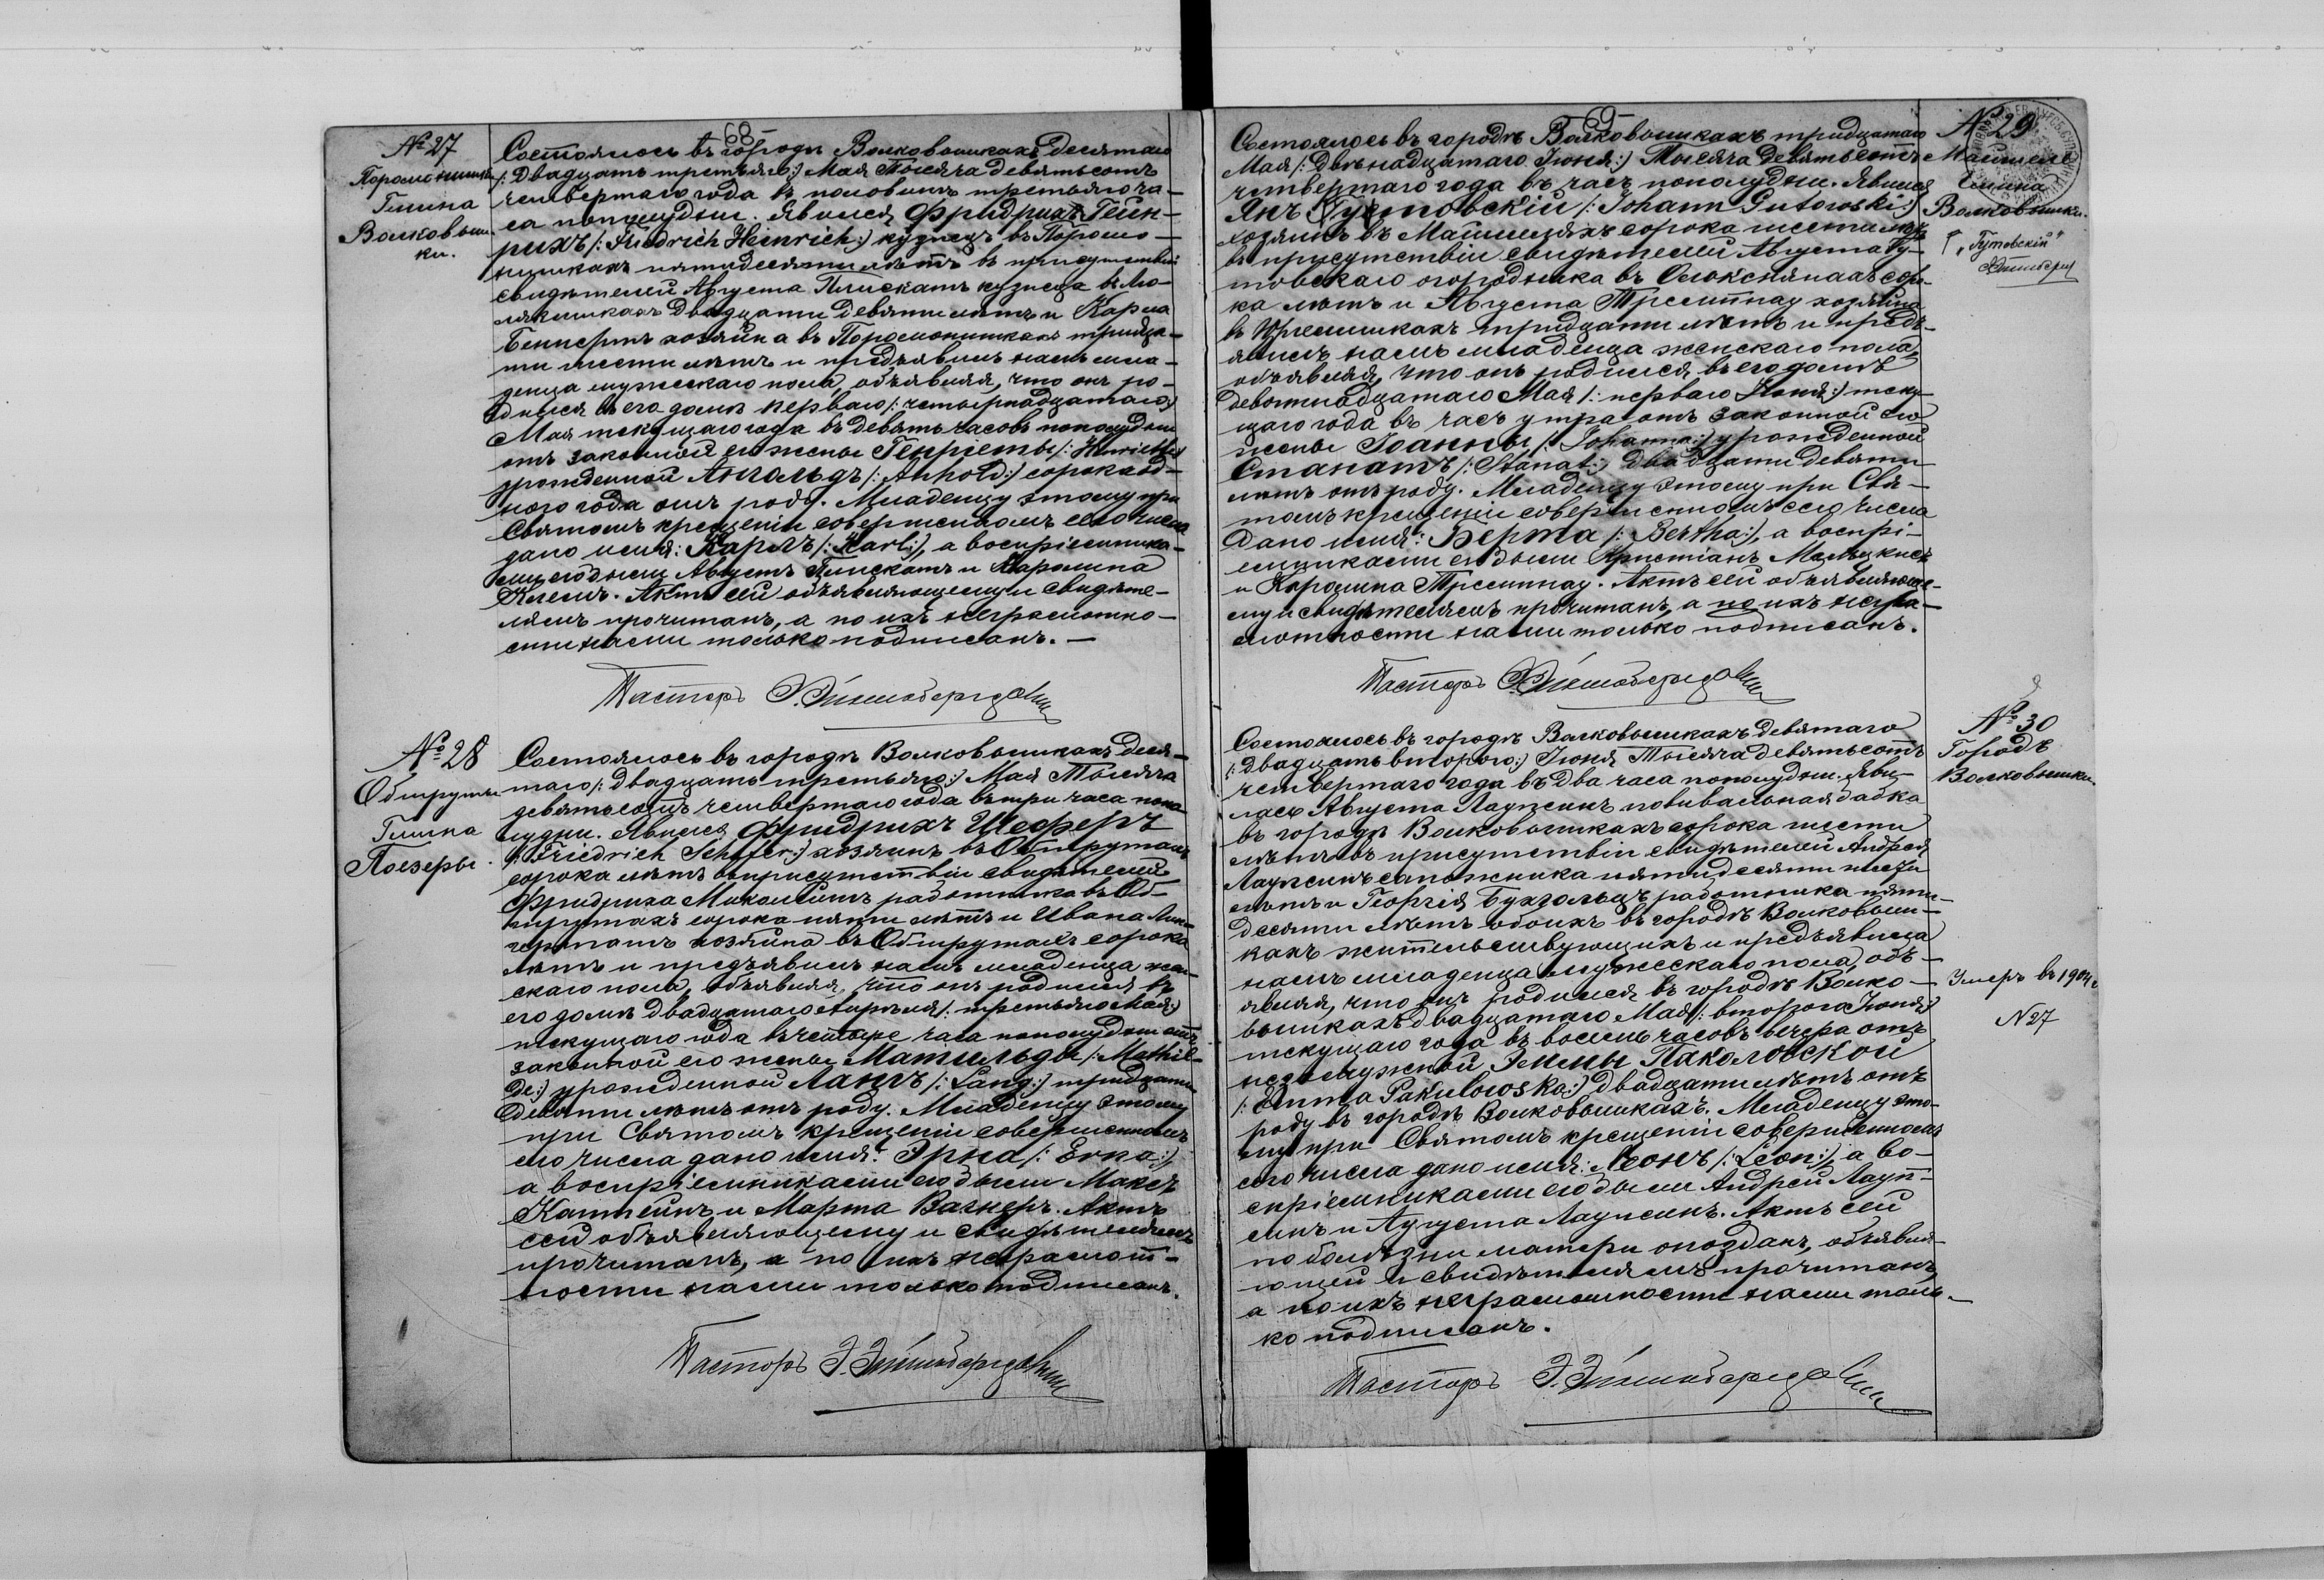 68
№ 27
Поромонишки
Гмина
Волковыш-
ки.
Состоялось въ городѣ Волковышкахъ десятаго
/: двадцать третьяго :/ Мая тысяча девятьсотъ
четвертаго года въ половинѣ третьяго ча-
са пополудни. Явился Фридрихъ Гейн-
рихъ /: Friedrich Heinrich :/ кузнецъ въ Поромо-
нишкахъ пятидесяти лѣтъ въ присутствіи
свидѣтелей Августа Плискатъ кузнеца въ
двадцати девяти лѣтъ и Карла
хозяина въ Поромонишкахъ тридца-
ти шести лѣтъ и предъявилъ намъ мла-
денца мужескаго пола, объявляя, что онъ ро-
дился въ его домѣ перваго /: четырнадцатаго :/
Мая текущаго года въ девять часовъ пополудни
отъ законной его жены Генріеты /: Henriette :/
урожденной Ангольдъ /: Anhold :/ сорока од-
ного года отъ роду. Младенцу этому при
Святомъ крещеніи совершенномъ сего числа
дано имя: Карлъ /: Karl :/, а воспріемника-
ми его были Августъ Плискатъ и Каролина
Актъ сей объявляющему и свидѣте-
лямъ прочитанъ, а по ихъ неграмотно-
сти нами только подписанъ. —
Пасторъ Э.
№ 28
Обшруты
Гмина
Поезеры.
Состоялось въ городѣ Волковышкахъ деся-
таго /: двадцать третьяго :/ Мая тысяча
девятьсотъ четвертаго года въ три часа попо-
лудни. Явился Фридрихъ Шеферъ
/: Friedrich Schäfer :/ хозяинъ въ Обшрутахъ
сорока лѣтъ въ присутствіи свидѣтелей
Фридриха работника въ Об-
шрутахъ сорока пяти лѣтъ и Ивана
хозяина въ Обшрутахъ сорока
лѣтъ и предъявилъ намъ младенца жен-
скаго пола, объявляя, что онъ родился въ
его домѣ двадцатаго Апрѣля /: третьяго Мая :/
текущаго года въ четыре часа пополудни отъ
законной его жены Матильды /: Mathil-
de :/ урожденной Лангъ /: Lang :/ тридцати
девяти лѣтъ отъ роду. Младенцу этому
при Святомъ крещеніи совершенномъ
сего числа дано имя: Эрна /: Erna :/,
а воспріемниками его были Максъ
и Марта Вагнеръ. Актъ
сей объявляющему и свидѣтелямъ
прочитанъ, а по ихъ неграмот-
ности нами только подписанъ.
Пасторъ Э.
69
№ 29
Гмина
Волковышки.
"Гутовскій"
Состоялось въ городѣ Волковышкахъ тридцатаго
Мая /: двѣнадцатаго Іюня :/ тысяча девятьсотъ
четвертаго года въ часъ пополудни. Явился
Янъ Гутовскій /: Johann Gutowski :/
хозяинъ въ сорока шести лѣтъ
въ присутствіи свидѣтелей Августа Гу-
товскаго огородника въ соро-
ка лѣтъ и Августа хозяина
въ тридцати лѣтъ и предъ-
явилъ намъ младенца женскаго пола,
объявляя, что онъ родился въ его домѣ
девятнадцатаго Мая /: перваго Іюня :/ теку-
щаго года въ часъ утра отъ законной его
жены Іоанны /: Johanna :/ урожденной
Станатъ /: Stanat :/ двадцати девяти
лѣтъ отъ роду. Младенцу этому при Свя-
томъ крещеніи совершенномъ сего числа
дано имя: Берта /: Bertha :/, а воспрі-
емниками его были Христіанъ
и Каролина Актъ сей объявляюще-
му и свидѣтелямъ прочитанъ, а по ихъ негра-
мотности нами только подписанъ.
Пасторъ Э.
№ 30
Городъ
Волковышки.
Состоялось въ городѣ Волковышкахъ девятаго
/: двадцать второго :/ Іюня тысяча девятьсотъ
четвертаго года въ два часа пополудни. Яви-
лась Августа повивальная бабка
въ городѣ Волковышкахъ сорока шести
лѣтъ въ присутствіи свидѣтелей Андрея
сапожника пятидесяти шести
лѣтъ и Георгія Бухгольцъ работника пяти-
десяти лѣтъ обоихъ въ городѣ Волковыш-
кахъ жительствующихъ и предъявила
намъ младенца мужескаго пола, объ-
являя, что онъ родился въ городѣ Волко-
вышкахъ двадцатаго Мая /: второго Іюня :/
текущаго года въ восемь часовъ вечера отъ
незамужной Эммы Пакуловской
/: Emma Pakulowska :/ двадцати лѣтъ отъ
роду въ городѣ Волковышкахъ. Младенцу это-
му при Святомъ крещеніи совершенномъ
сего числа дано имя: Леонъ /: Leon :/, а во-
спріемниками его были Андрей
и Августа Актъ сей
по болѣзни матери опозданъ, объявля-
ющей и свидѣтелямъ прочитанъ,
а по ихъ неграмотности нами толь-
ко подписанъ.
Умеръ въ 1904 г.
N 27
Пасторъ Э.